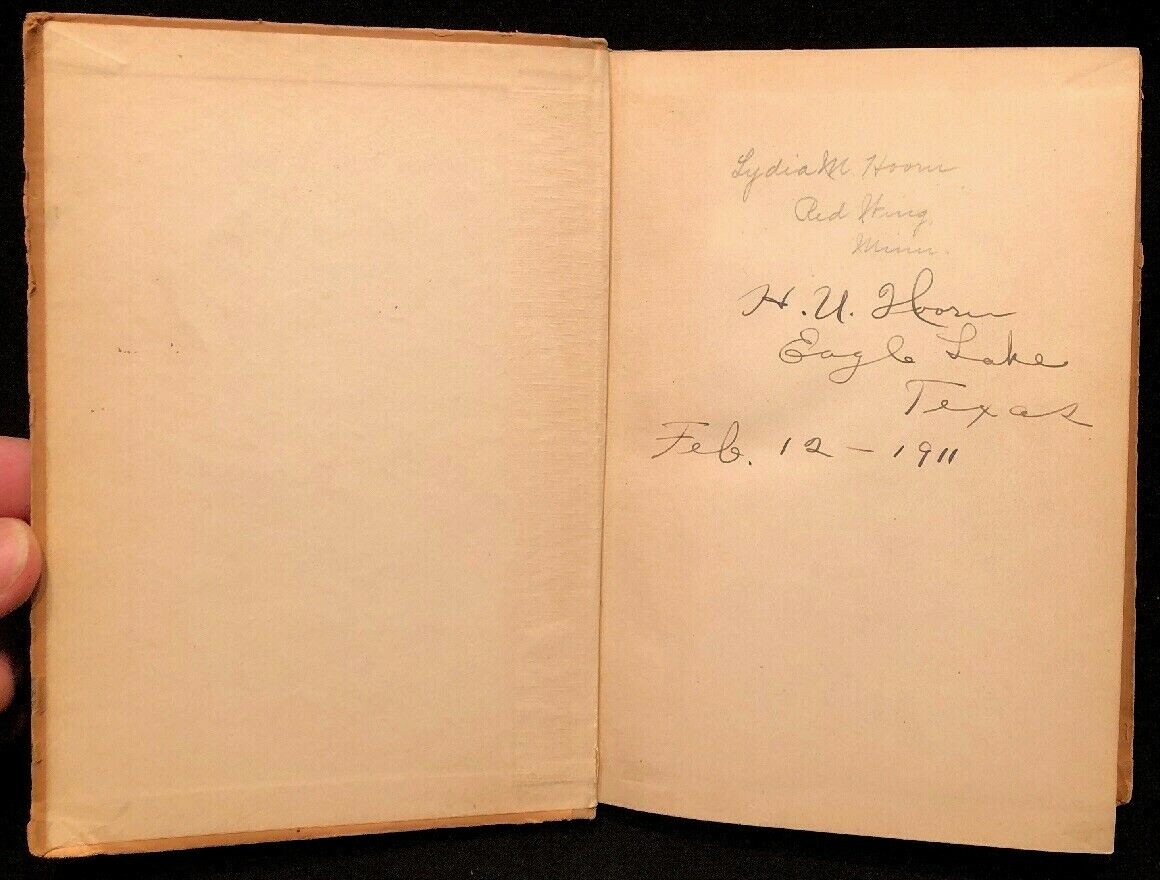 Lydia M. Hoorn
Red Wing,
Minn.
H. U. Hoorn
Eagle Lake
Texas
Feb. 12 - 1911